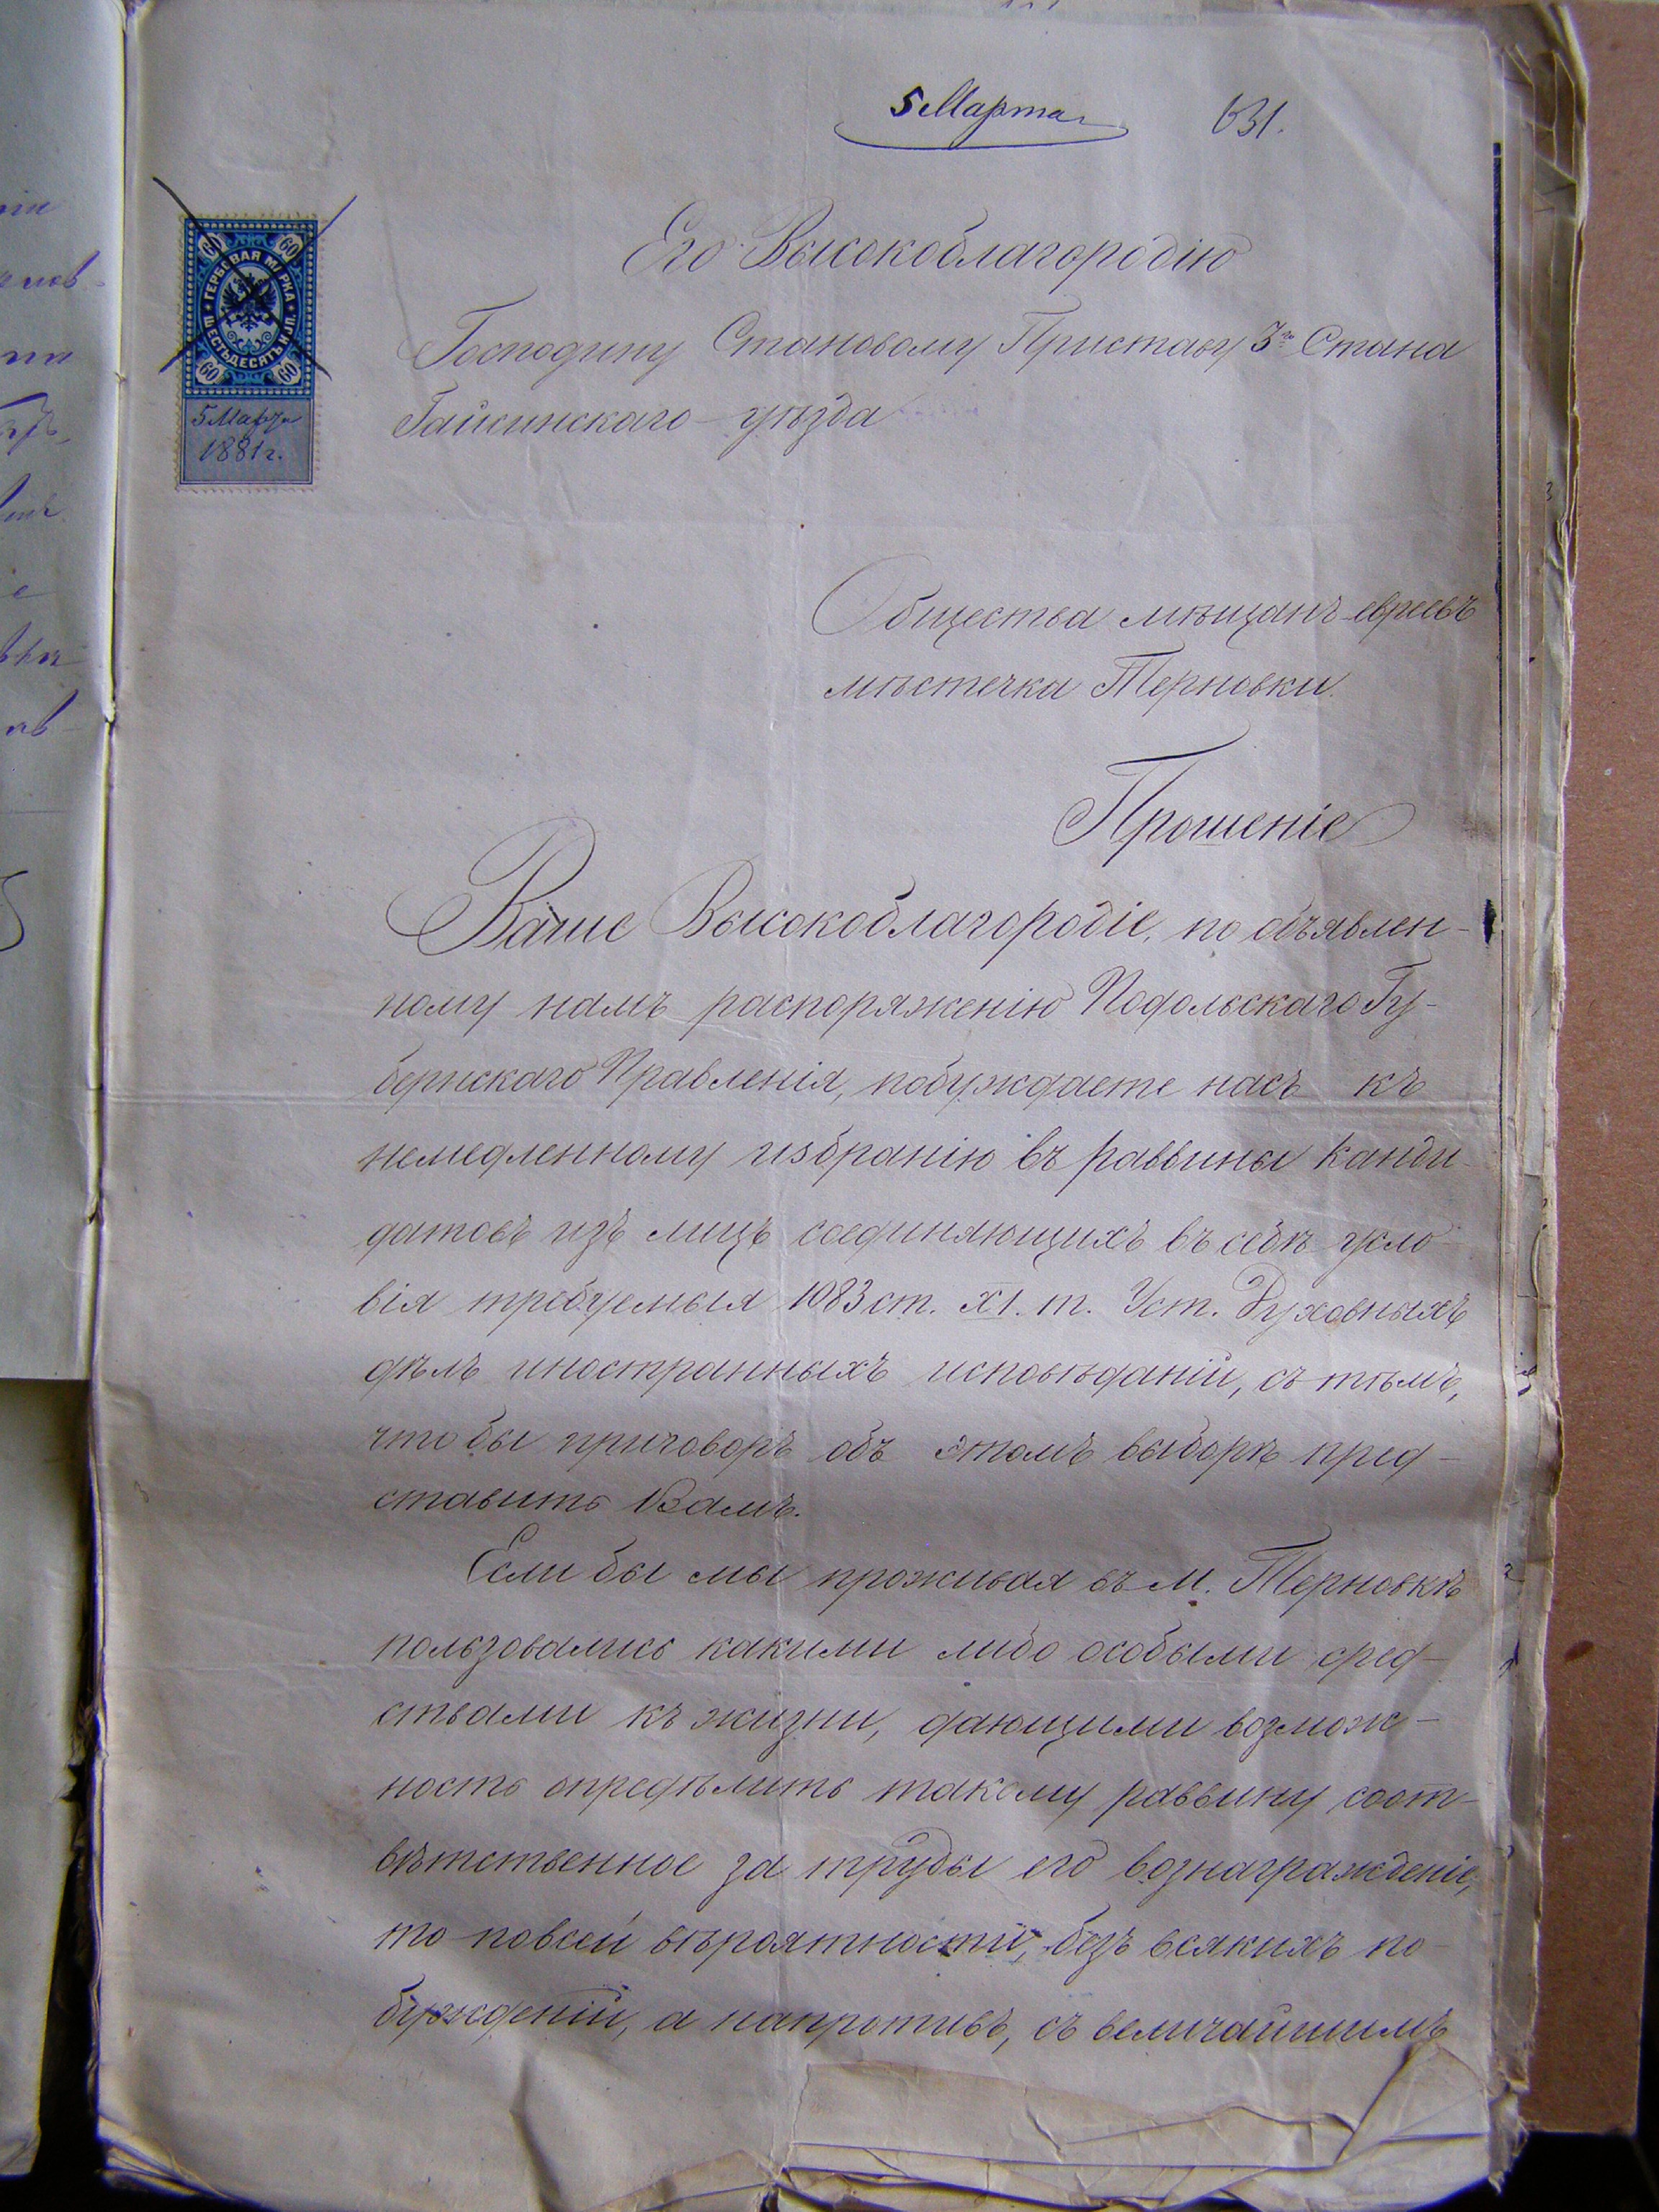 5 Марта 631.
60 60
ГЕРБОВАЯ МАРКА
ШЕСТЬДЕСЯТЪ КОП.
60 60
5 Марта
1881 г.
Его Высокоблагородію
Господину Становому Приставу 3го Стана
Гайсинскаго уѣзда
Общества мѣщанъ евреевъ
мѣстечка Терновки.
Прошеніе
Ваше Высокоблагородіе, по объявлен-
ному намъ распоряженію Подольскаго Гу-
бернскаго Правленія, побуждаете насъ къ
немедленному избранію въ раввины канди-
датовъ изъ лицъ соединяющихъ въ себѣ усло-
вія требуемыя 1083 ст. XI. т. Уст. Духовныхъ
дѣлъ иностранныхъ исповѣданій, съ тѣмъ,
чтобы приговоръ объ этомъ выборѣ пред-
ставить Вамъ.
Если бы мы проживая въ м. Терновкѣ
пользовались какими либо особыми сред-
ствами къ жизни, дающими возмож-
ность опредѣлить такому раввину соот-
вѣтственное за труды его вознагражденіе,
то по всей вѣроятности, безъ всякихъ по-
бужденій, а напротивъ, съ величайшимъ